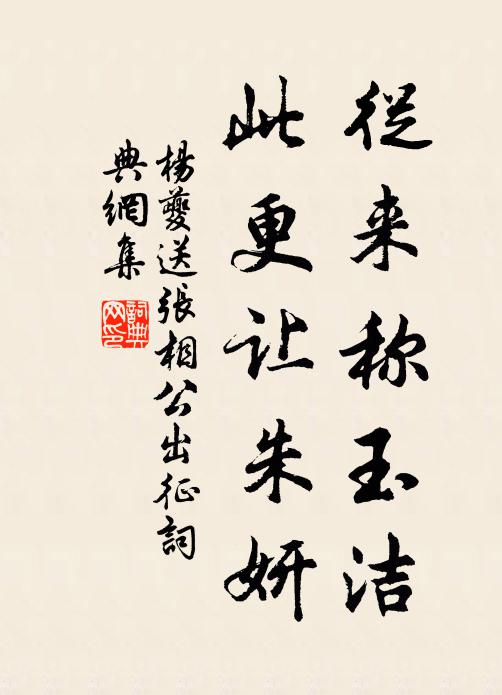 從来称玉洁
此更让朱妍
楊夔送張相公出征詞
典網集
詞典网印